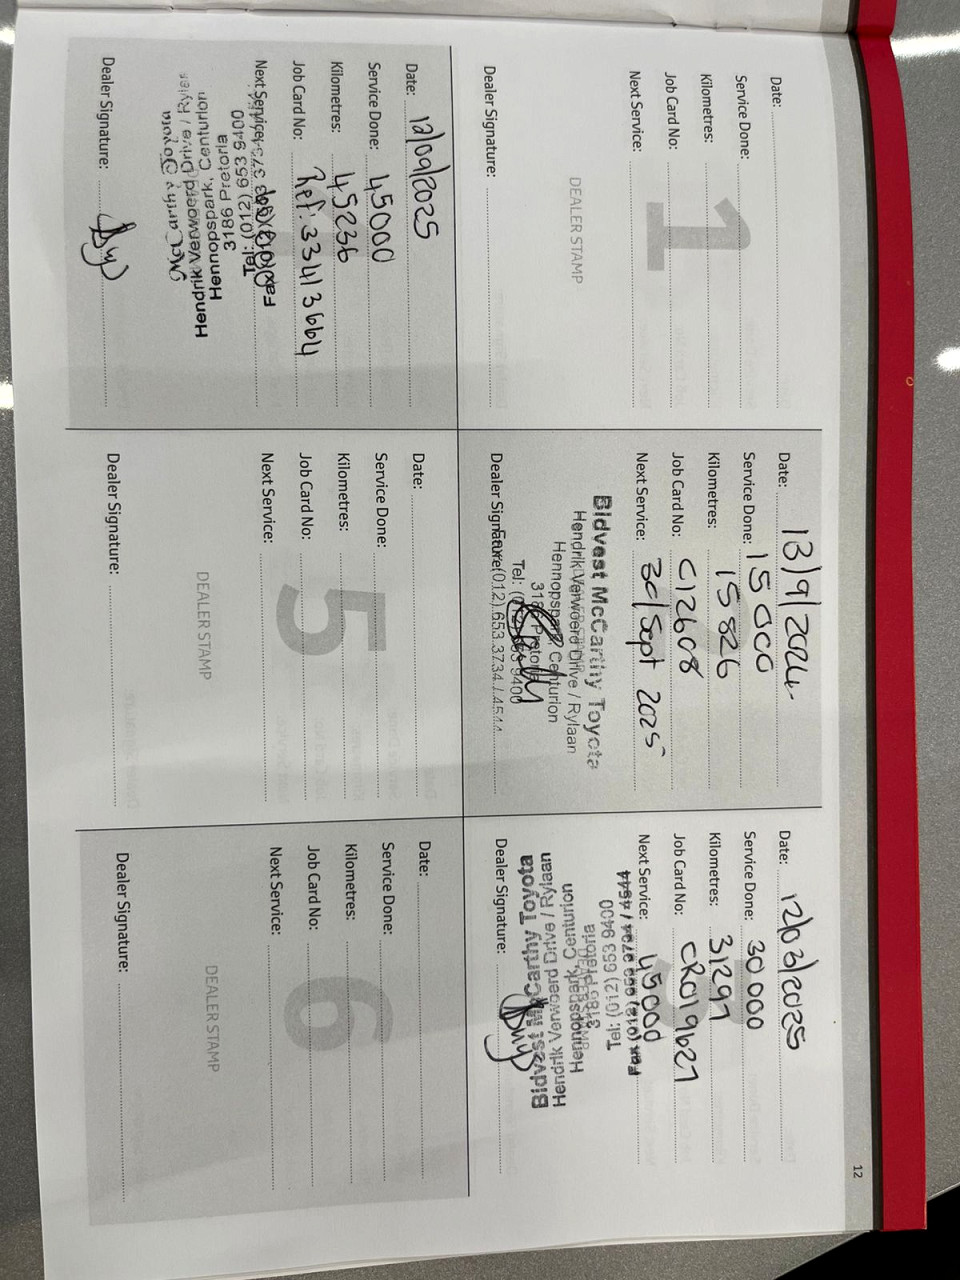 12
Date:
Service Done:
Kilometres:
Job Card No:
Next Service:
1
DEALER STAMP
Dealer Signature:
Date: 13/9/2024
Service Done: 15000
Kilometres: 15826
Job Card No: C12608
Next Service: 30/Sept 2025
Bidvest McCarthy Toyota
Hendrik Verwoerd Drive / Rylaan
Hennopspark, Centurion
3186 Pretoria
Tel: (012) 653 9400
Fax: (012) 653 3734 / 4544
Dealer Signature:
Date: 12/03/2025
Service Done: 30000
Kilometres: 31297
Job Card No: CR019627
Next Service: 45000
3
Bidvest McCarthy Toyota
Hendrik Verwoerd Drive / Rylaan
Hennopspark, Centurion
3186 Pretoria
Tel: (012) 653 9400
DEALER STAMP
Dealer Signature:
Date: 12/09/2025
Service Done: 45000
Kilometres: 45236
Job Card No: Ref: 33413664
Next Service:
Hendrik Verwoerd Drive / Rylaan
Hennopspark, Centurion
3186 Pretoria
Tel: (012) 653 9400
Fax
Dealer Signature:
Date:
Service Done:
Kilometres:
Job Card No:
Next Service:
5
DEALER STAMP
Dealer Signature:
Date:
Service Done:
Kilometres:
Job Card No:
Next Service:
6
DEALER STAMP
Dealer Signature: